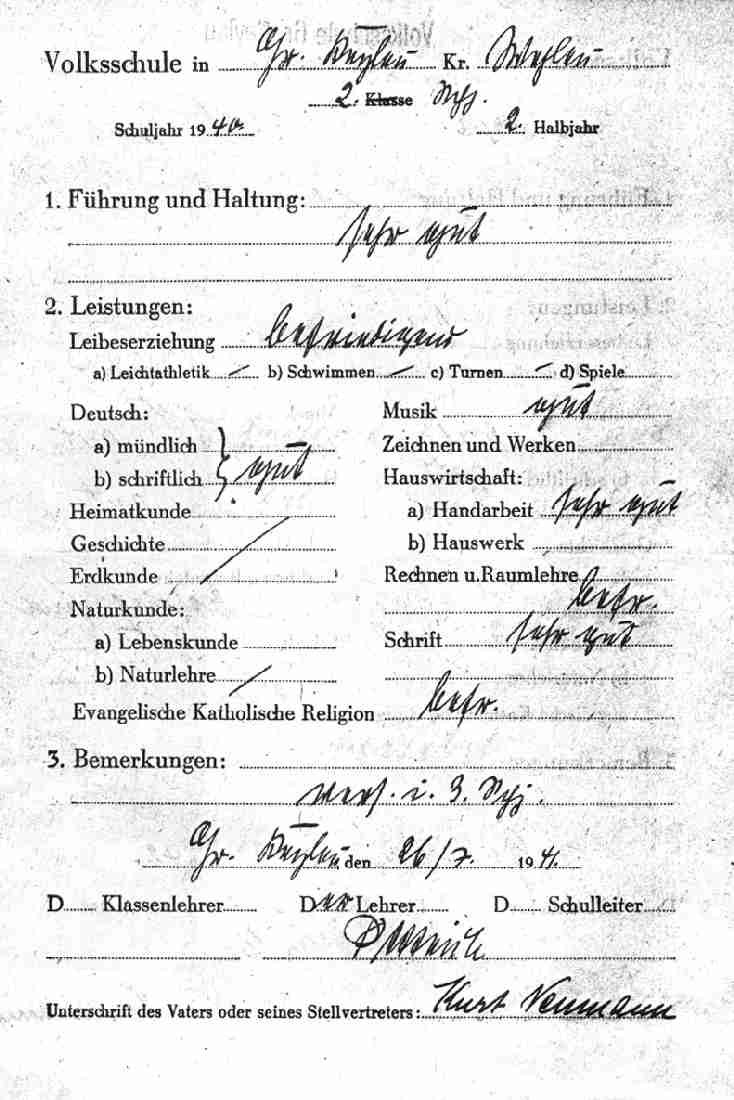 Volksschule in Gr. Keylau Kr. Wehlau
2. Klasse Schj.
Schuljahr 1940. 2. Halbjahr
1. Führung und Haltung:
sehr gut
2. Leistungen:
Leibeserziehung befriedigend
a) Leichtathletik — b) Schwimmen — c) Turnen — d) Spiele
Deutsch:
a) mündlich
b) schriftlich gut
Heimatkunde
Geschichte
Erdkunde
Naturkunde:
a) Lebenskunde
b) Naturlehre
Musik gut
Zeichnen und Werken
Hauswirtschaft:
a) Handarbeit sehr gut
b) Hauswerk
Rechnen u. Raumlehre
befr.
Schrift sehr gut
Evangelische Katholische Religion befr.
3. Bemerkungen:
vers. i. 3. Schj.
Gr. Keylau, den 26/7. 1941.
D Klassenlehrer Der Lehrer D Schulleiter
Unterschrift des Vaters oder seines Stellvertreters: Kurt Neumann